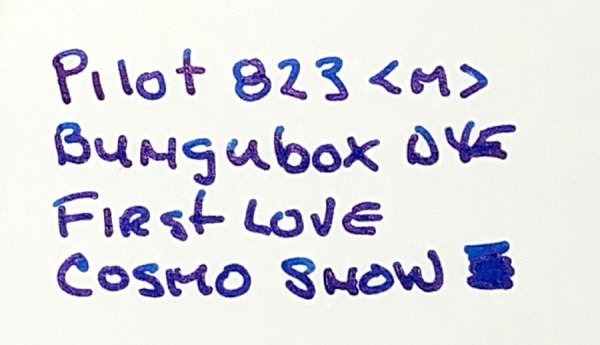 Pilot 823 <M>
Bungubox DYE
First Love
Cosmo Snow